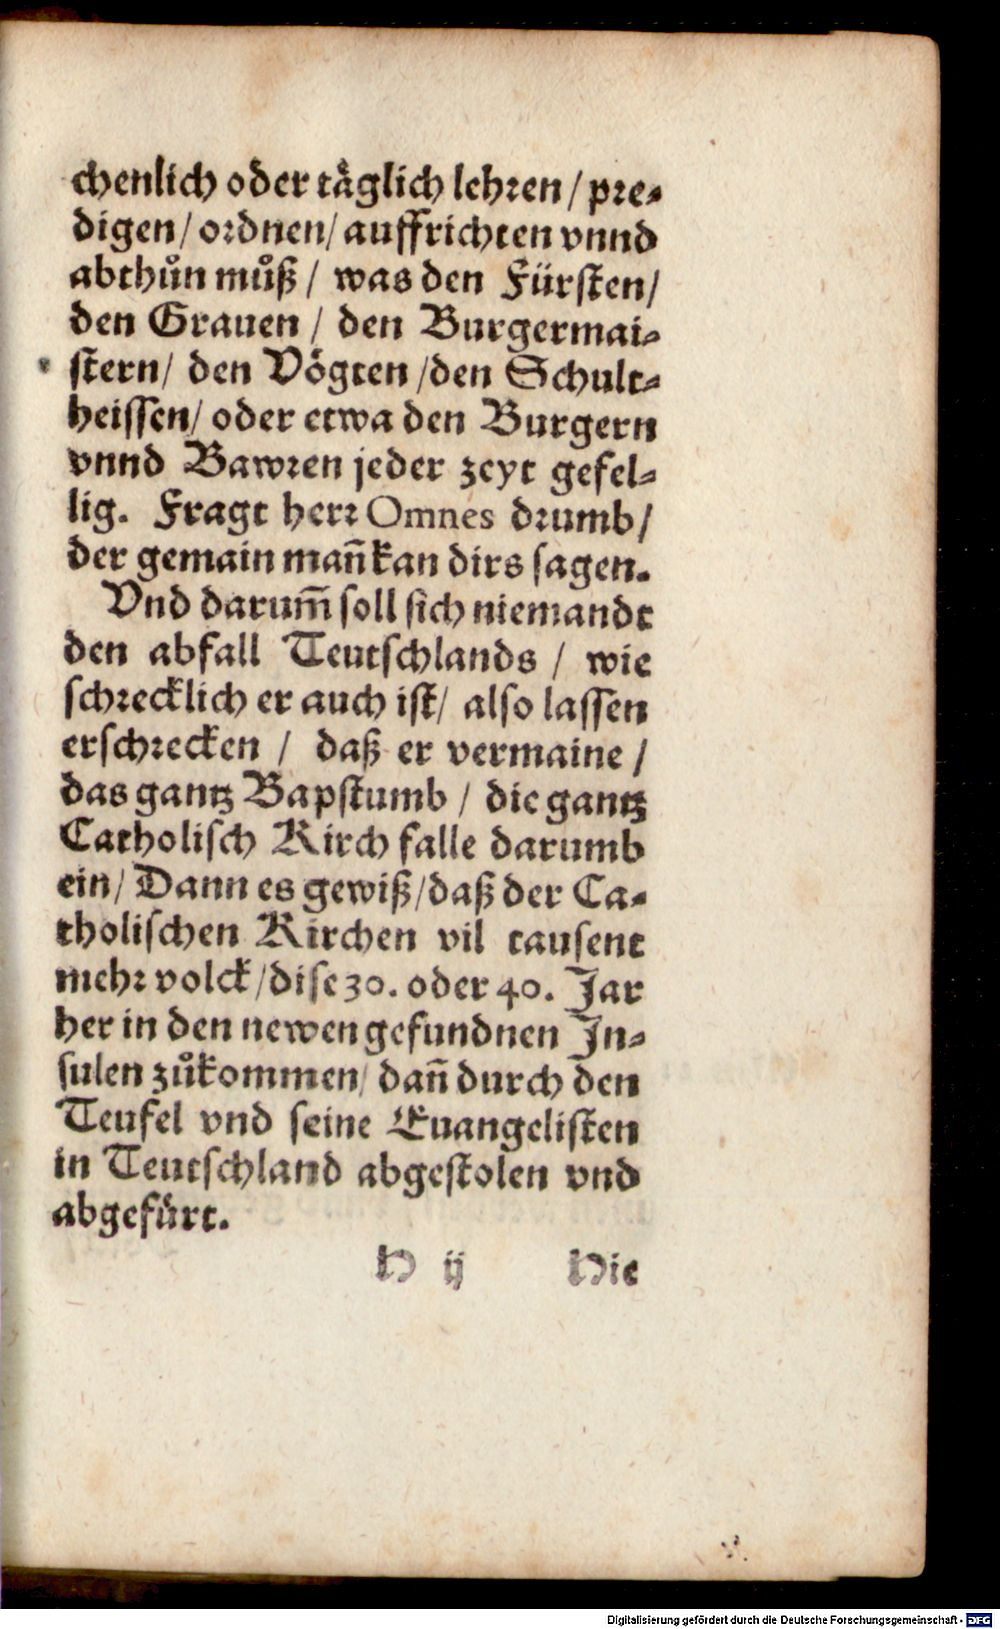 chenlich oder tåglich lehren / pre-
digen / ordnen / auffrichten vnnd
abthůn můß / was den Fürsten /
den Grauen / den Burgermai-
stern / den Vögten / den Schult-
heissen / oder etwa den Burgern
vnnd Bawren jeder zeyt gefel-
lig. Fragt herr Omnes drumb /
der gemain man̄ kan dirs sagen.
Vnd darum̄ soll sich niemandt
den abfall Teutschlands / wie
schrecklich er auch ist / also lassen
erschrecken / daß er vermaine /
das gantz Bapstumb / die gantz
Catholisch Kirch falle darumb
ein / Dann es gewiß / daß der Ca-
tholischen Kirchen vil tausent
mehr volck / dise 30. oder 40. Jar
her in den newen gefundnen In-
sulen zůkommen / dan̄ durch den
Teufel vnd seine Euangelisten
in Teutschland abgestolen vnd
abgefürt.
H ij Hie
Digitalisierung gefördert durch die Deutsche Forschungsgemeinschaft - DFG